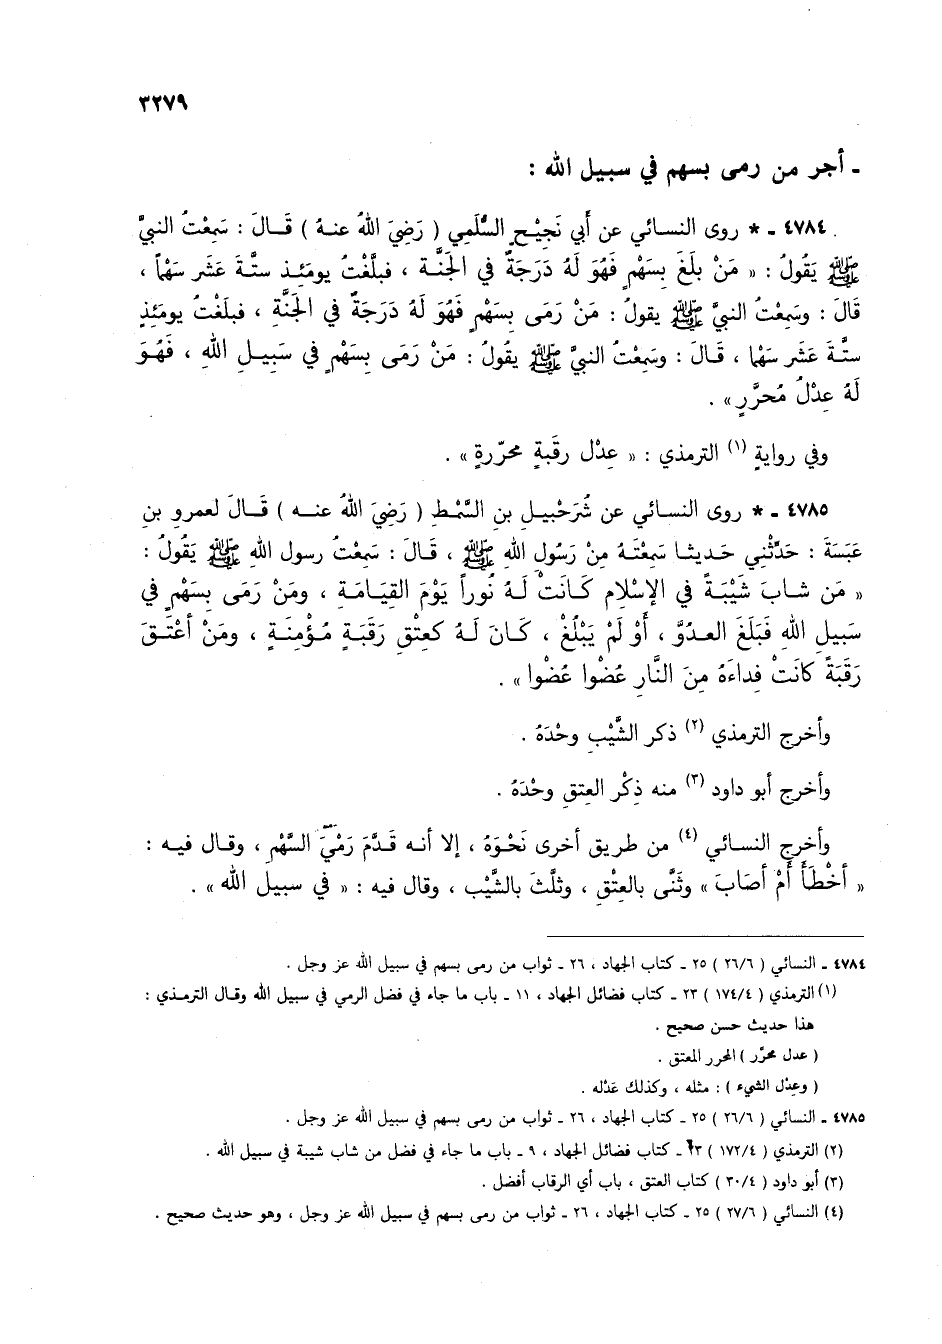 ٣٢٧٩
ـ أجر من رمى بسهم في سبيل الله :
٤٧٨٤ ـ * روى النسائي عن أبي نَجِيْحٍ السُّلَمِي ( رَضِيَ اللهُ عنهُ ) قَالَ : سَمِعْتُ النبيَّ
ﷺ يَقُولُ : « مَنْ بَلَغَ بِسَهْمٍ فَهُوَ لَهُ دَرَجَةٌ في الجَنَّة ، فبلَّغْتُ يومَئِذ ستَّةَ عَشَر سَهْماً ،
قَالَ : وسَمِعْتُ النبيَّ ﷺ يقولُ : مَنْ رَمَى بِسَهْمٍ فَهُوَ لَهُ دَرَجةٌ في الجَنَّةِ ، فبلَغْتُ يومَئِذٍ
ستَّةَ عَشَر سَهْما ، قَالَ : وسَمِعْتُ النبيَّ ﷺ يقُولُ : مَنْ رَمَى بِسَهْمٍ في سَبِيلِ اللهِ ، فَهُوَ
لَهُ عِدْلُ مُحرَّرٍ » .
وفي روايةِ (١) الترمذي : « عِدْل رقَبةٍ محرّرةٍ » .
٤٧٨٥ ـ * روى النسائي عن شُرَحْبيل بنِ السَّمْطِ ( رَضِيَ اللهُ عنه ) قَالَ لعمرو بنِ
عَبَسَةَ : حَدِّثْني حَديثا سَمِعْتَهُ مِنْ رَسُولِ اللهِ ﷺ ، قَالَ : سَمِعْتُ رسول اللهِ ﷺ يَقُولُ :
« مَن شابَ شَيْبَةً في الإسْلامِ كَانَتْ لَهُ نُوراً يَوْمَ القِيَامَةِ ، ومَنْ رَمَى بِسَهْمٍ في
سَبِيلِ اللهِ فَبَلَغَ العدُوَّ ، أوْ لَمْ يَبْلُغْ ، كَانَ لَهُ كعِتْقِ رَقَبَةٍ مُؤْمِنَةٍ ، ومَنْ أعْتَقَ
رَقبَةً كانَتْ فِداءَهُ مِنَ النَّارِ عُضْوا عُضْوا » .
وأخرج الترمذي (٢) ذكر الشَّيْبِ وحْدَهُ .
وأخرج أبو داود (٣) منه ذِكْر العتقِ وحْدَهُ .
وأخرج النسائي (٤) من طريق أخرى نَحْوَهُ ، إلا أنه قَدَّمَ رَمْيَ السَّهْمِ ، وقال فيه :
« أخْطَأَ أمْ أصَابَ » وثَنَّى بالعِتْقِ ، وثلَّثَ بالشَّيْب ، وقال فيه : « في سبيل الله » .
٤٧٨٤ ـ النسائي ( ٢٦/٦ ) ٢٥ ـ كتاب الجهاد ، ٢٦ ـ ثواب من رمى بسهم في سبيل الله عز وجل .
(١) الترمذي ( ١٧٤/٤ ) ٢٣ ـ كتاب فضائل الجهاد ، ١١ ـ باب ما جاء في فضل الرمي في سبيل الله وقال الترمذي :
هذا حديث حسن صحيح .
( عدل محرَّر ) المحرر المعتق .
( وعِدْل الشيء ) : مثله ، وكذلك عَدْله .
٤٧٨٥ ـ النسائي ( ٢٦/٦ ) ٢٥ ـ كتاب الجهاد ، ٢٦ ـ ثواب من رمى بسهم في سبيل الله عز وجل .
(٢) الترمذي ( ١٧٢/٤ ) ٢٣ ـ كتاب فضائل الجهاد ، ٩ ـ باب ما جاء في فضل من شاب شيبة في سبيل الله .
(٣) أبو داود ( ٣٠/٤ ) كتاب العتق ، باب أي الرقاب أفضل .
(٤) النسائي ( ٢٧/٦ ) ٢٥ ـ كتاب الجهاد ، ٢٦ ـ ثواب من رمى بسهم في سبيل الله عز وجل ، وهو حديث صحيح .